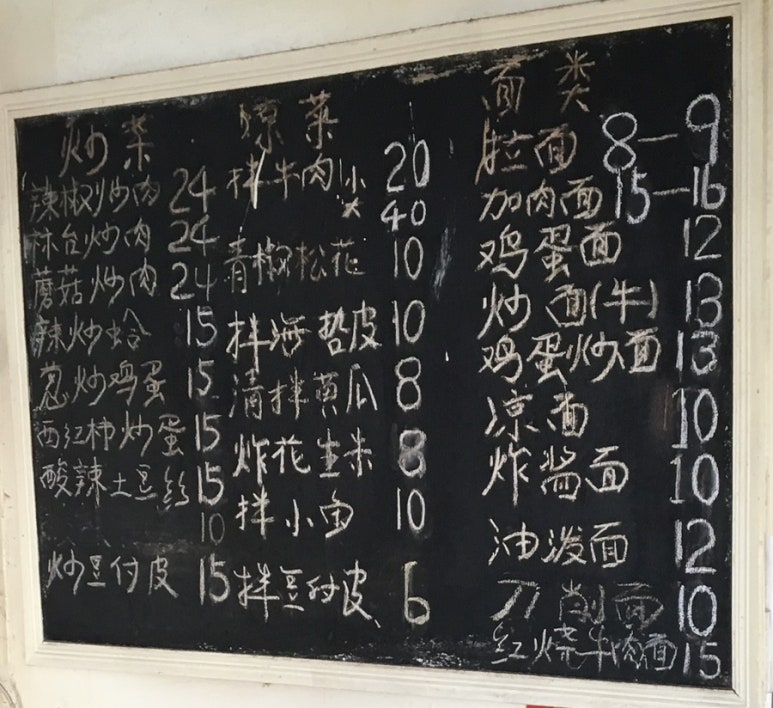 炒菜
辣椒炒肉 24
林台炒肉 24
蘑菇炒肉 24
辣炒蛤 15
葱炒鸡蛋 15
西红柿炒蛋 15
酸辣土豆丝 15
10
炒豆付皮 15
凉菜
拌牛肉 小 20
大 40
青椒松花 10
拌海蜇皮 10
清拌黄瓜 8
炸花生米 8
拌小鱼 10
拌豆付皮 6
面类
拉面 8—9
加肉面 15—16
鸡蛋面 12
炒面(牛) 13
鸡蛋炒面 13
凉面 10
炸酱面 10
油泼面 12
刀削面 10
红烧牛肉面 15